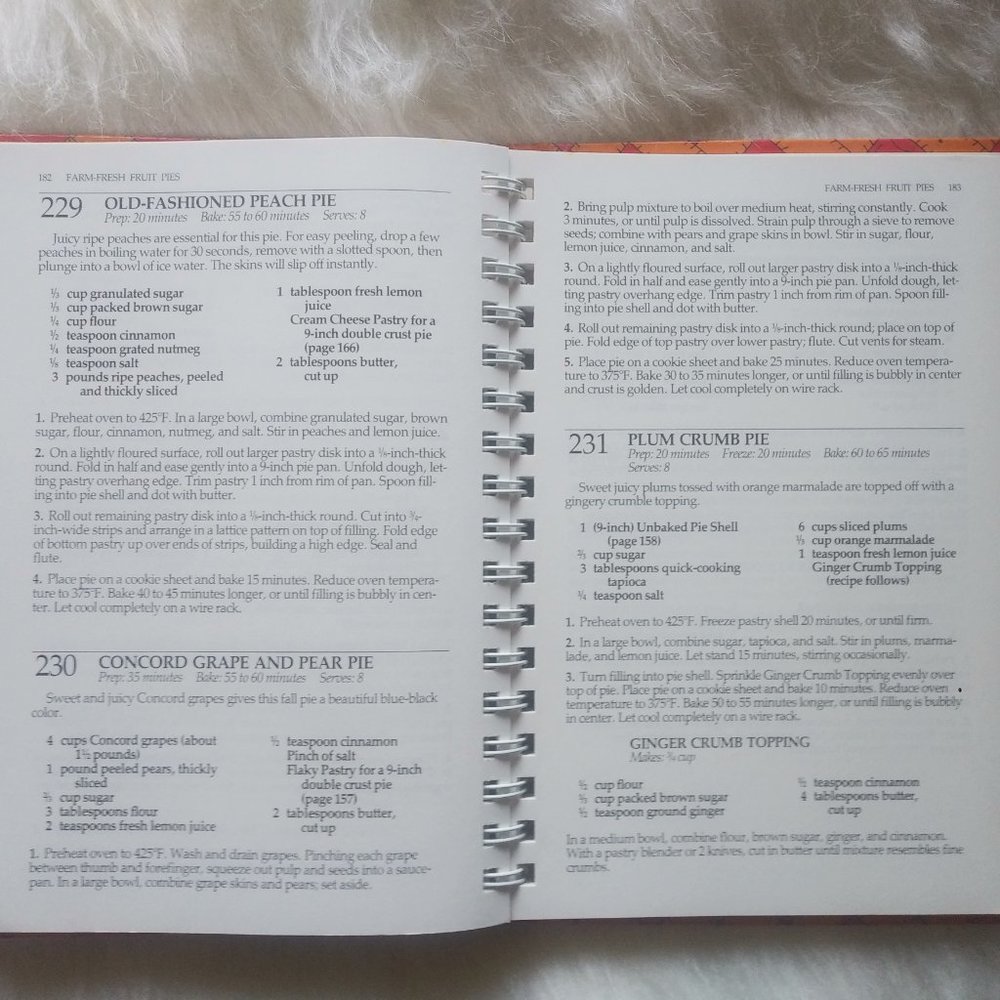 182 FARM-FRESH FRUIT PIES
229 OLD-FASHIONED PEACH PIE
Prep: 20 minutes Bake: 55 to 60 minutes Serves: 8
Juicy ripe peaches are essential for this pie. For easy peeling, drop a few
peaches in boiling water for 30 seconds, remove with a slotted spoon, then
plunge into a bowl of ice water. The skins will slip off instantly.
⅓ cup granulated sugar
⅓ cup packed brown sugar
¼ cup flour
½ teaspoon cinnamon
¼ teaspoon grated nutmeg
⅛ teaspoon salt
3 pounds ripe peaches, peeled
and thickly sliced
1 tablespoon fresh lemon
juice
Cream Cheese Pastry for a
9-inch double crust pie
(page 166)
2 tablespoons butter,
cut up
1. Preheat oven to 425°F. In a large bowl, combine granulated sugar, brown
sugar, flour, cinnamon, nutmeg, and salt. Stir in peaches and lemon juice.
2. On a lightly floured surface, roll out larger pastry disk into a ⅛-inch-thick
round. Fold in half and ease gently into a 9-inch pie pan. Unfold dough, let-
ting pastry overhang edge. Trim pastry 1 inch from rim of pan. Spoon fill-
ing into pie shell and dot with butter.
3. Roll out remaining pastry disk into a ⅛-inch-thick round. Cut into ¾-
inch-wide strips and arrange in a lattice pattern on top of filling. Fold edge
of bottom pastry up over ends of strips, building a high edge. Seal and
flute.
4. Place pie on a cookie sheet and bake 15 minutes. Reduce oven tempera-
ture to 375°F. Bake 40 to 45 minutes longer, or until filling is bubbly in cen-
ter. Let cool completely on a wire rack.
230 CONCORD GRAPE AND PEAR PIE
Prep: 35 minutes Bake: 55 to 60 minutes Serves: 8
Sweet and juicy Concord grapes gives this fall pie a beautiful blue-black
color.
4 cups Concord grapes (about
1½ pounds)
1 pound peeled pears, thickly
sliced
⅔ cup sugar
3 tablespoons flour
2 teaspoons fresh lemon juice
½ teaspoon cinnamon
Pinch of salt
Flaky Pastry for a 9-inch
double crust pie
(page 157)
2 tablespoons butter,
cut up
1. Preheat oven to 425°F. Wash and drain grapes. Pinching each grape
between thumb and forefinger, squeeze out pulp and seeds into a sauce-
pan. In a large bowl, combine grape skins and pears; set aside.
FARM-FRESH FRUIT PIES 183
2. Bring pulp mixture to boil over medium heat, stirring constantly. Cook
3 minutes, or until pulp is dissolved. Strain pulp through a sieve to remove
seeds; combine with pears and grape skins in bowl. Stir in sugar, flour,
lemon juice, cinnamon, and salt.
3. On a lightly floured surface, roll out larger pastry disk into a ⅛-inch-thick
round. Fold in half and ease gently into a 9-inch pie pan. Unfold dough, let-
ting pastry overhang edge. Trim pastry 1 inch from rim of pan. Spoon fill-
ing into pie shell and dot with butter.
4. Roll out remaining pastry disk into a ⅛-inch-thick round; place on top of
pie. Fold edge of top pastry over lower pastry; flute. Cut vents for steam.
5. Place pie on a cookie sheet and bake 25 minutes. Reduce oven tempera-
ture to 375°F. Bake 30 to 35 minutes longer, or until filling is bubbly in center
and crust is golden. Let cool completely on wire rack.
231 PLUM CRUMB PIE
Prep: 20 minutes Freeze: 20 minutes Bake: 60 to 65 minutes
Serves: 8
Sweet juicy plums tossed with orange marmalade are topped off with a
gingery crumble topping.
1 (9-inch) Unbaked Pie Shell
(page 158)
⅔ cup sugar
3 tablespoons quick-cooking
tapioca
¼ teaspoon salt
6 cups sliced plums
⅓ cup orange marmalade
1 teaspoon fresh lemon juice
Ginger Crumb Topping
(recipe follows)
1. Preheat oven to 425°F. Freeze pastry shell 20 minutes, or until firm.
2. In a large bowl, combine sugar, tapioca, and salt. Stir in plums, marma-
lade, and lemon juice. Let stand 15 minutes, stirring occasionally.
3. Turn filling into pie shell. Sprinkle Ginger Crumb Topping evenly over
top of pie. Place pie on a cookie sheet and bake 10 minutes. Reduce oven
temperature to 375°F. Bake 50 to 55 minutes longer, or until filling is bubbly
in center. Let cool completely on a wire rack.
GINGER CRUMB TOPPING
Makes: ¾ cup
½ cup flour
⅓ cup packed brown sugar
½ teaspoon ground ginger
½ teaspoon cinnamon
4 tablespoons butter,
cut up
In a medium bowl, combine flour, brown sugar, ginger, and cinnamon.
With a pastry blender or 2 knives, cut in butter until mixture resembles fine
crumbs.